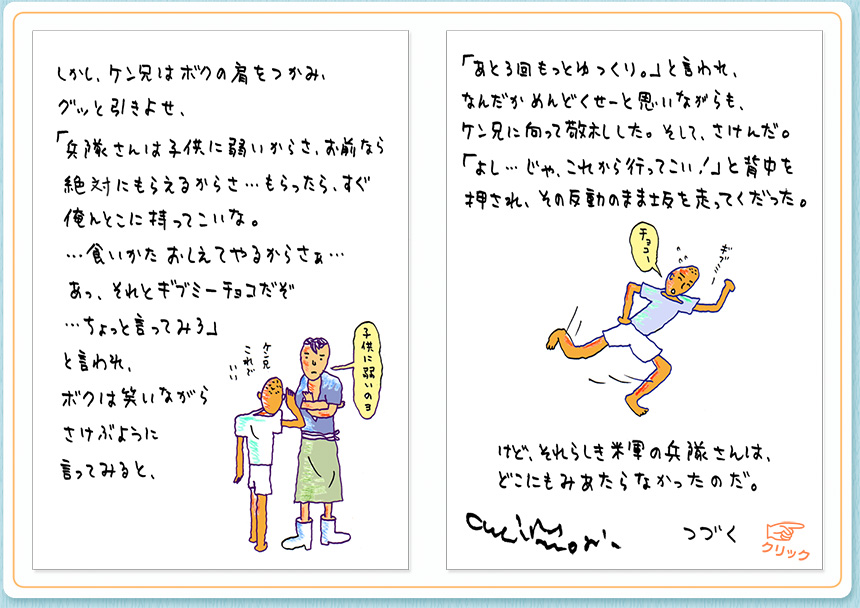 しかし、ケン兄はボクの肩をつかみ、
グッと引きよせ、
「兵隊さんは子供に弱いからさ、お前なら
絶対にもらえるからさ…もらったら、すぐ
俺んとこに持ってこいな。
…食いかた おしえてやるからさぁ…
あっ、それとギブミーチョコだぞ
…ちょっと言ってみろ」
と言われ、
ボクは笑いながら
さけぶように
言ってみると、
ケン兄
これで
いい
子供に弱いのヨ
「あと3回もっとゆっくり。」と言われ、
なんだかめんどくせーと思いながらも、
ケン兄に向って敬礼した。そして、さけんだ。
「よし…じゃ、これから行ってこい!」と背中を
押され、その反動のまま坂を走ってくだった。
チョコー
ギブミー
けど、それらしき米軍の兵隊さんは、
どこにもみあたらなかったのだ。
つづく
クリック